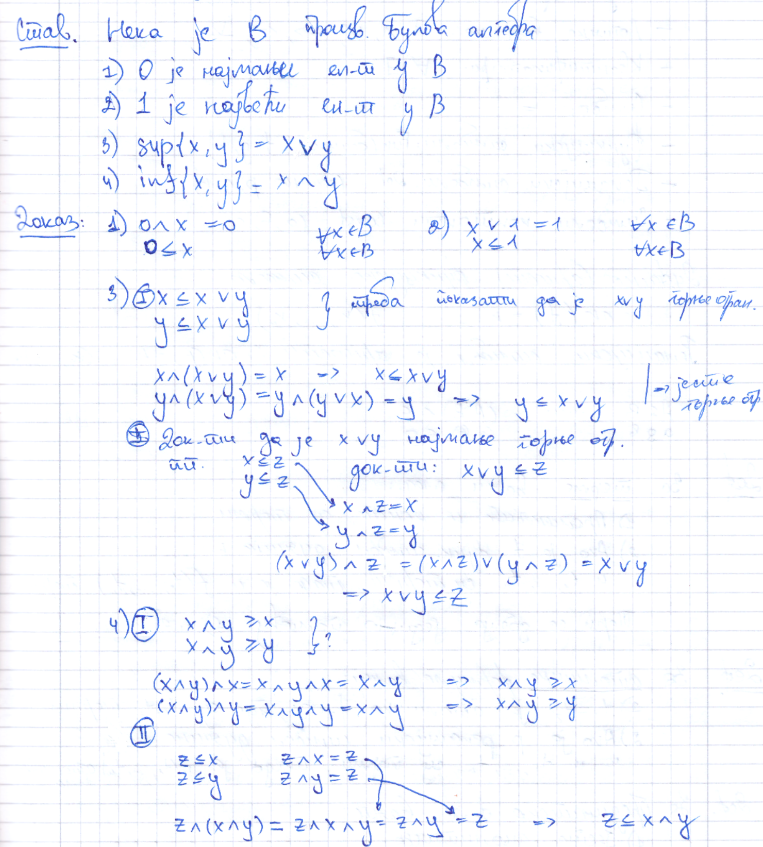 Став. Нека је B произв. Булова алгебра
1) 0 је најмањи ел-т у B
2) 1 је највећи ел-т у B
3) sup{x,y} = x∨y
4) inf{x,y} = x∧y
Доказ: 1) 0∧x = 0 ∀x∈B 2) x∨1 = 1 ∀x∈B
0≤x ∀x∈B x≤1 ∀x∈B
3) Ⓘ x ≤ x∨y } треба показати да је x∨y горње огран.
y ≤ x∨y
x∧(x∨y) = x => x≤x∨y
y∧(x∨y) = y∧(y∨x) = y => y ≤ x∨y |=> јесте горње огр
Ⓘ Док-ти да је x∨y најмање горње огр.
пп. x≤z док-ти: x∨y ≤ z
y≤z
x∧z=x
y∧z=y
(x∨y)∧z = (x∧z)∨(y∧z) = x∨y
=> x∨y≤z
4) Ⓘ x∧y ≥ x } ?
x∧y ≥ y
(x∧y)∧x = x∧y∧x = x∧y => x∧y ≥ x
(x∧y)∧y = x∧y∧y = x∧y => x∧y ≥ y
Ⅱ
z≤x z∧x = z
z≤y z∧y = z
z∧(x∧y) = z∧x∧y = z∧y = z => z≤x∧y